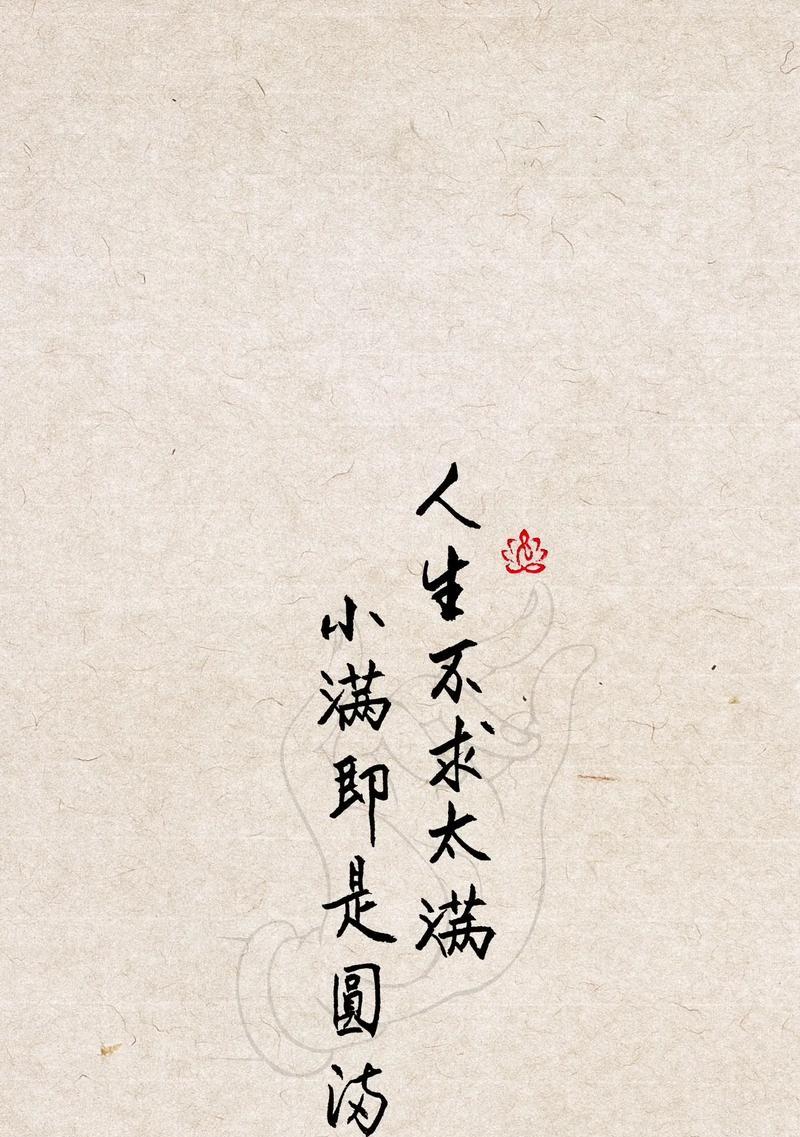 人生不求太满
小满即是圓满